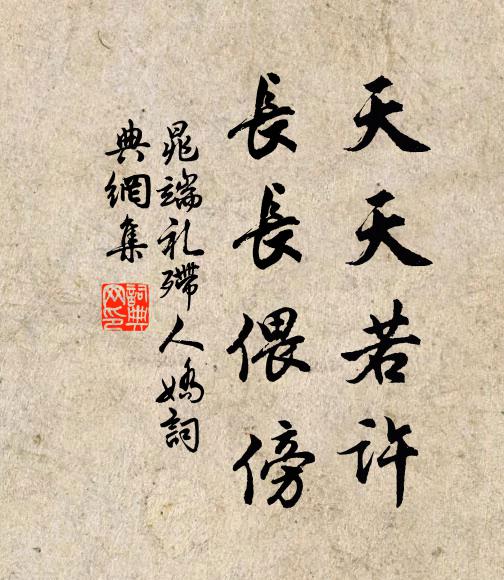 天天若許
長長偎傍
晁端礼殢人嬌詞
典網集
詞典網印